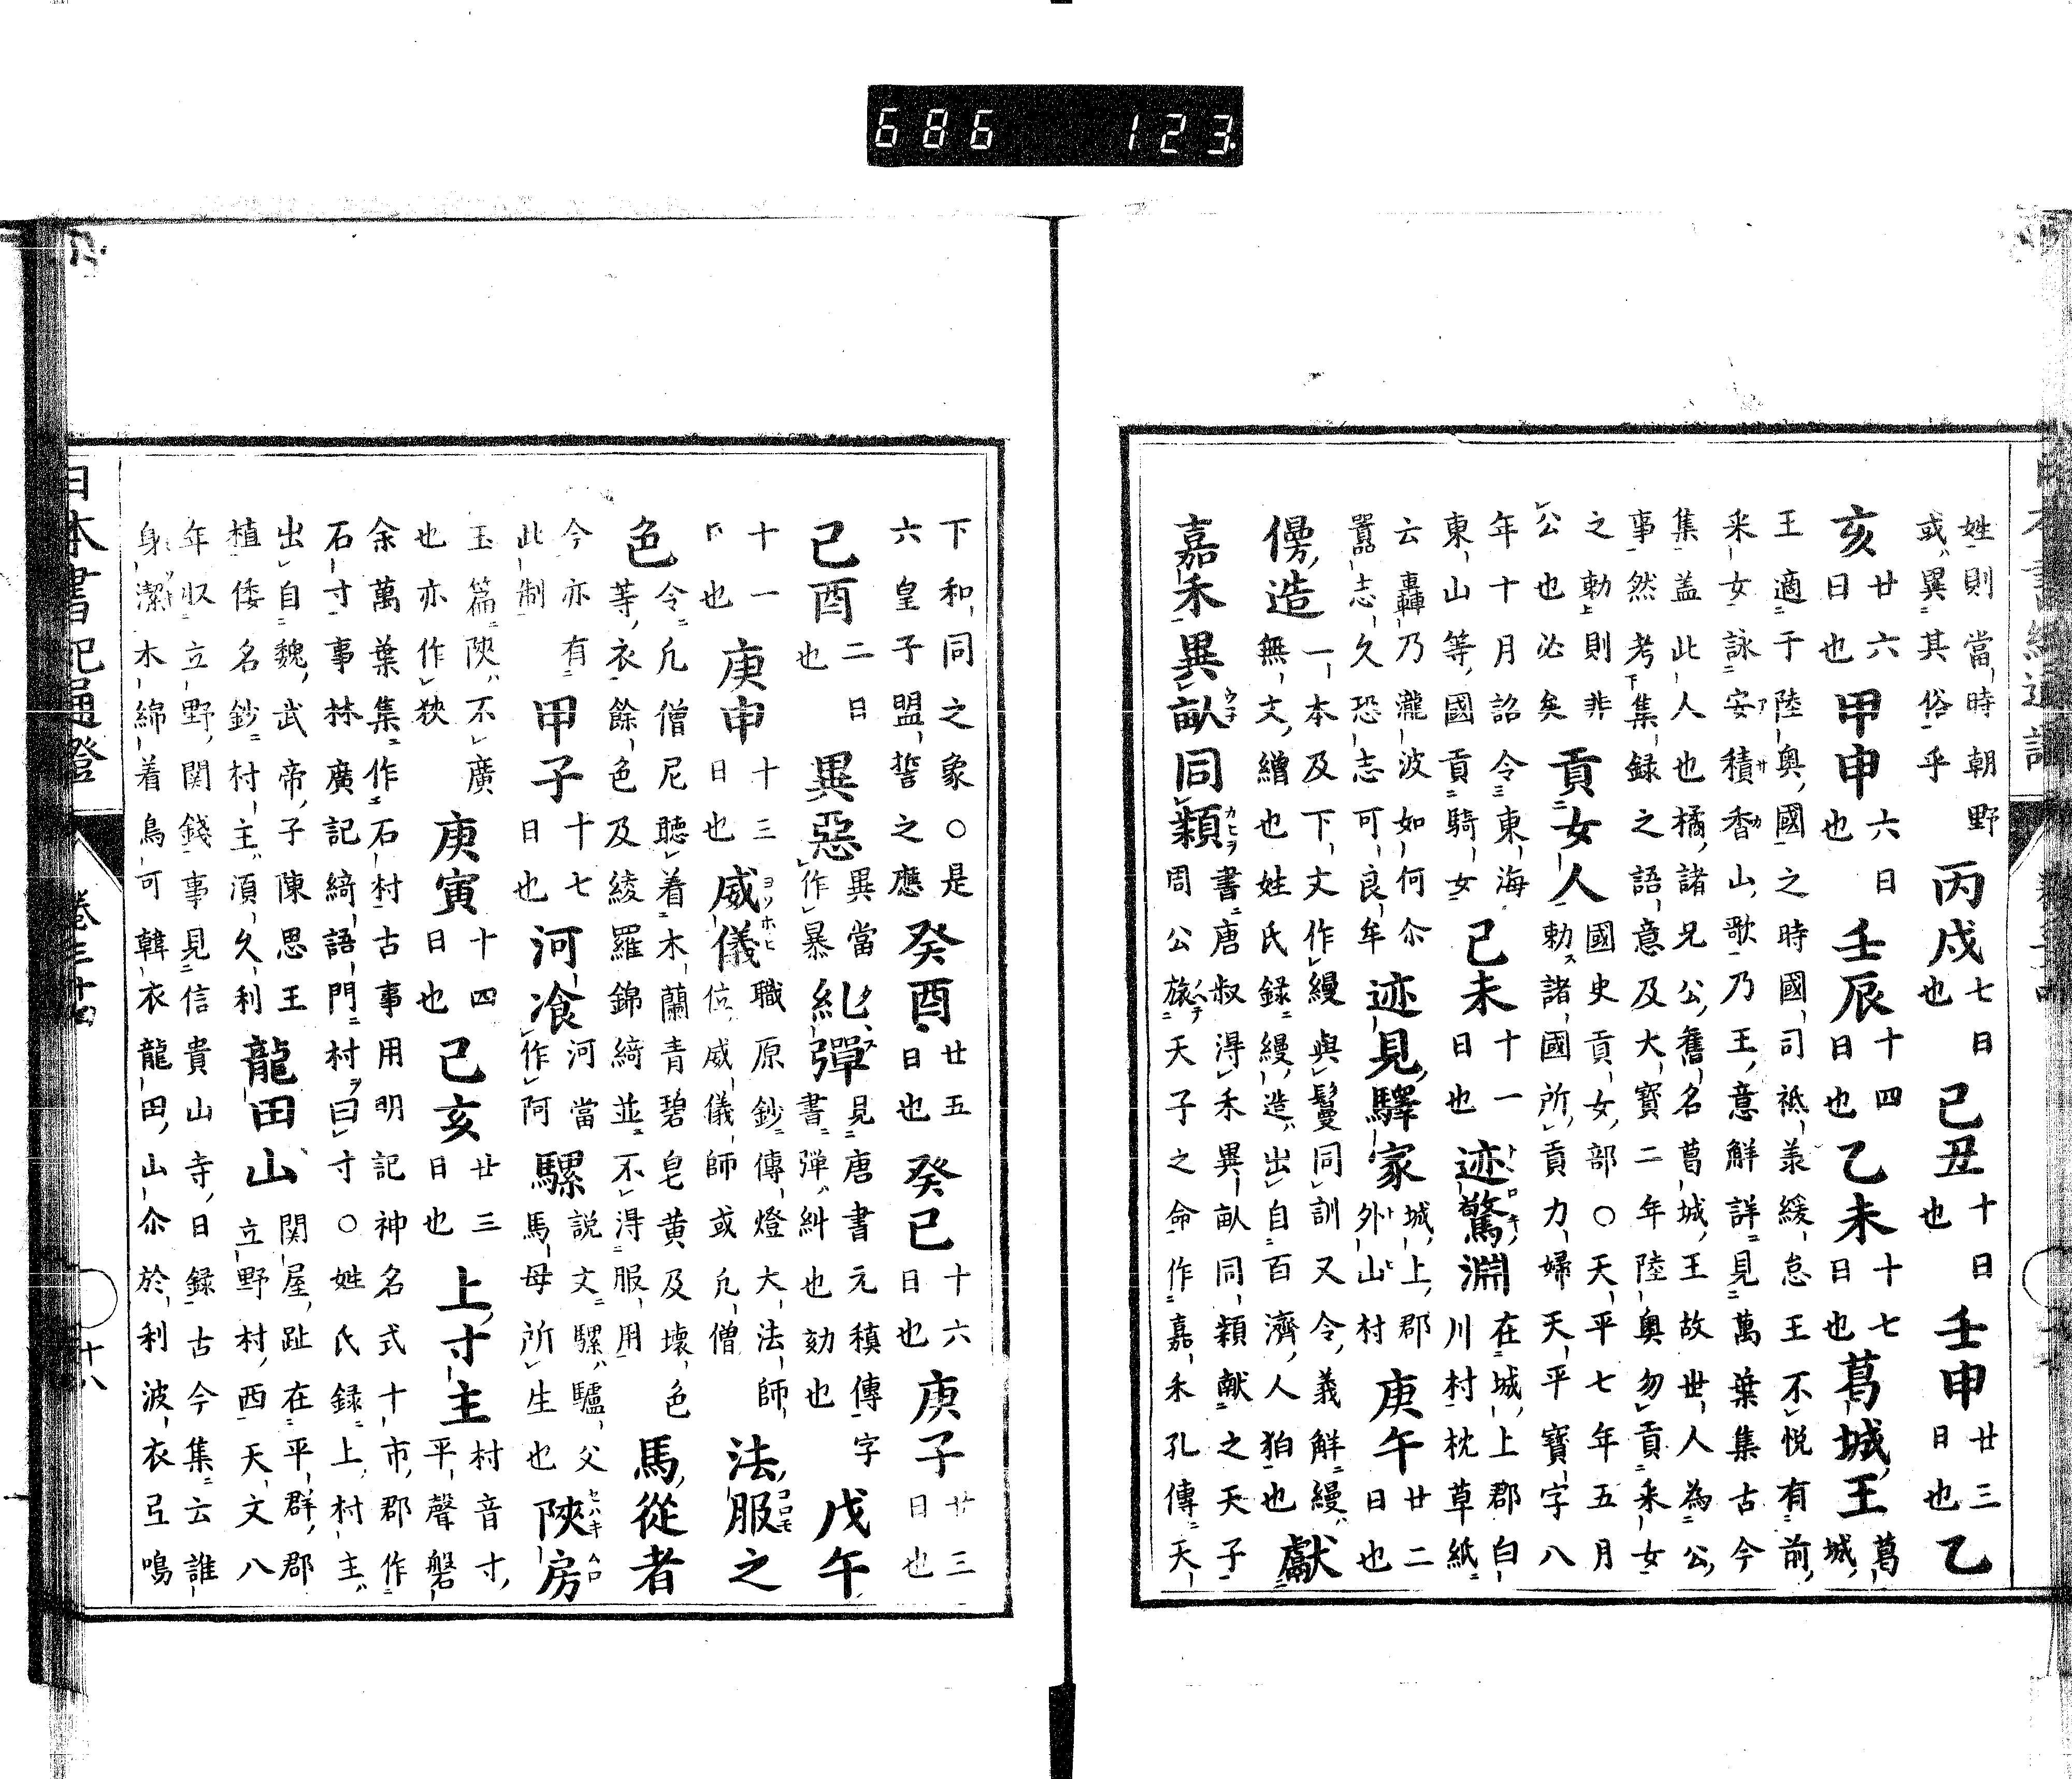 姓則當時朝野
或異其俗乎 丙戌 七日也 己丑 十日也 壬申 廿三日也 乙
亥 廿六日也 甲申 六日也 壬辰 十四日也 乙未 十七日也 葛城王 葛城
王適于陸奥國之時國司祗羕緩怠王不悅有前
采女詠安積香山歌乃王意解詳見萬葉集古今
集盖此人也橘諸兄公舊名葛城王故世人為公
事然考集録之語意及大寶二年陸奥勿貢采女
之勅則非
公也必矣 貢女人 國史貢女部○天平七年五月
勅諸國所貢力婦天平寶字八
年十月詔令東海
東山等國貢騎女 己未 十一日也 迹驚淵 在城上郡白
川村枕草紙
云轟乃瀧波如何尒
囂志久恐志可良牟 迹見驛家 城上郡外山村 庚午 廿二日也
造 一本及下文作縵與鬘同訓又令義解縵
無文繒也姓氏録縵造出自百濟人狛也 獻
嘉禾異畒同穎 書唐叔得禾異畒同穎献之天子
周公旅天子之命作嘉禾孔傳天
下和同之象○是
六皇子盟誓之應 癸酉 廿五日也 癸巳 十六日也 庚子 廿三日也
己酉 二日也 異惡 異當作暴 糺彈 見唐書元稹傳字
書彈糾也劾也 戊午
十一日也 庚申 十三日也 威儀 職原鈔傳燈大法師
位威儀師或凢僧 法服之
色 令凢僧尼聽着木蘭青碧皂黄及壊色
等衣餘色及綾羅錦綺並不得服用 馬從者
今亦有此制 甲子 十七日也 河飡 河當作阿 騾 説文騾驢父
馬母所生也 陜房
玉篇陜不廣
也亦作狹 庚寅 十四日也 己亥 廿三日也 上寸主 村音寸
平聲磐
余萬葉集作石村古事用明記神名式十市郡作
石寸事林廣記綺語門村曰寸○姓氏録上村主
出自魏武帝子陳思王
植倭名鈔村主湏久利 龍田山 関屋趾在平群郡
立野村西天文八
年収立野関錢事見信貴山寺日録古今集云誰
身潔木綿着鳥可韓衣龍田山尒於利波衣弖鳴
日本書紀通證 卷三十四 十八
686 123